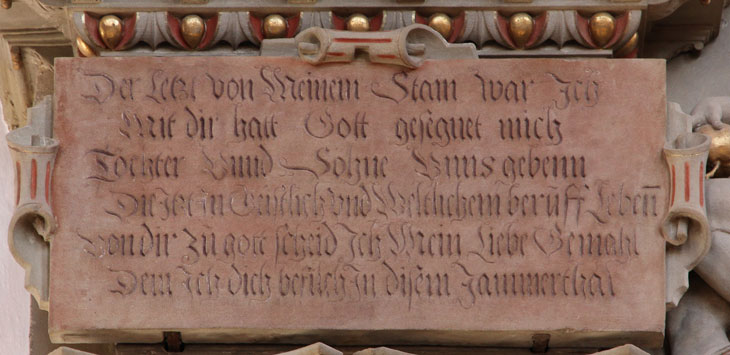 Der Letzt von Meinem Stam war Ich
Mit dir hatt Gott gesegnet mich
Tochter Vnnd Sohne Vnns gebenn
Die Jetz In Geistlich vnd Weltlichem beruff Lebenn
Von dir zu gott scheid Ich Mein Liebe Gemahl
Dem Ich dich befilch In disem Jammerthal